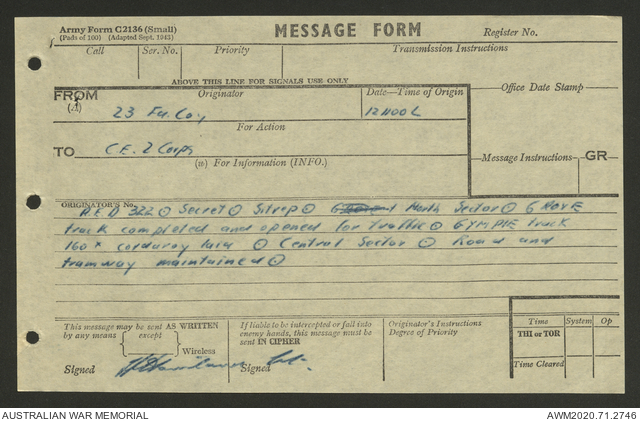 Army Form C2136 (Small)
(Pads of 100) (Adapted Sept. 1943)
MESSAGE FORM
Register No.
Call Ser. No. Priority Transmission Instructions
ABOVE THIS LINE FOR SIGNALS USE ONLY
FROM
(A)
Originator
Date—Time of Origin
Office Date Stamp
23 Fd. Coy
121400L
For Action
TO
C.E. 2 Corps
(w) For Information (INFO.)
Message Instructions GR
ORIGINATOR'S No.
R.E.D 322 ⊙ Secret ⊙ Sitrep ⊙ North Sector ⊙ GROVE
track completed and opened for traffic ⊙ GYMPIE track
160ˣ corduroy laid ⊙ Central Sector ⊙ Road and
tramway maintained ⊙
This message may be sent AS WRITTEN
by any means { except }
Wireless
Signed
If liable to be intercepted or fall into
enemy hands, this message must be
sent IN CIPHER
Signed
Originator's Instructions
Degree of Priority
Time System Op
THI or TOR
Time Cleared
AUSTRALIAN WAR MEMORIAL
AWM2020.71.2746